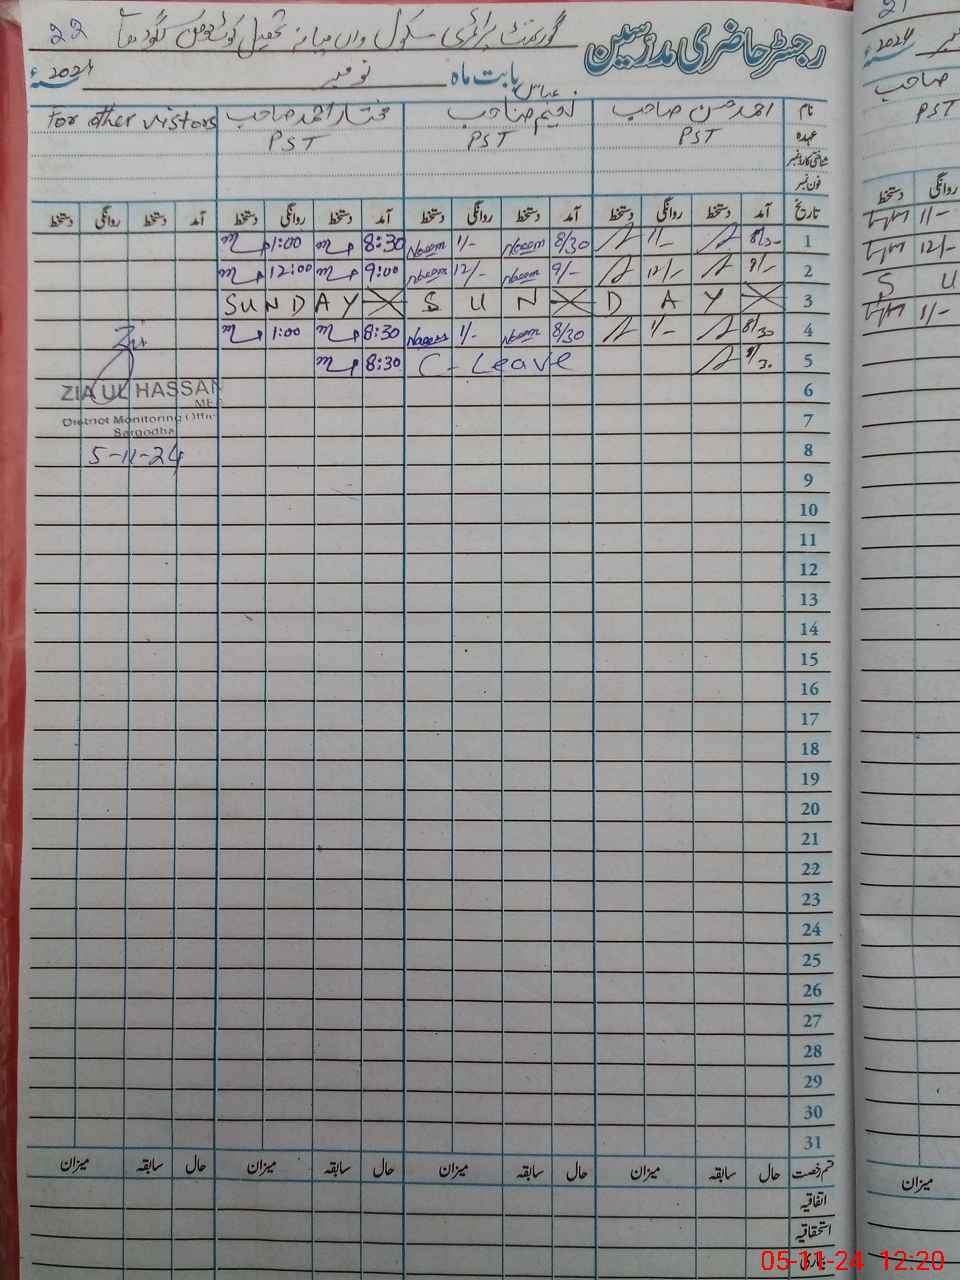 رجسٹر حاضری مدرسین گورنمنٹ پرائمری سکول واں میانہ تحصیل کوٹ مومن سرگودھا 22
بابت ماہ نومبر 2024ء
نام احمد حسن صاحب نعیم عباس صاحب مختار احمد صاحب For other vistors
عہدہ PST PST PST
شناختی کارڈ نمبر
فون نمبر
تاریخ آمد دستخط روانگی دستخط آمد دستخط روانگی دستخط آمد دستخط روانگی دستخط آمد دستخط روانگی دستخط
1 8/30 1/- 8/30 Naeem 1/- Naeem 8:30 1:00
2 9/- 12/- 9/- Naeem 12/- Naeem 9:00 12:00
3 SUNDAY SUN DAY
4 8/30 1/- 8/30 Naeem 1/- Naeem 8:30 1:00
5 8/30 C-Leave 8:30
6
7
8
9
10
11
12
13
14
15
16
17
18
19
20
21
22
23
24
25
26
27
28
29
30
31
ZIA UL HASSAN
District Monitoring Offic
Sargodha
5-11-24
قسم رخصت حال سابقہ میزان حال سابقہ میزان حال سابقہ میزان حال سابقہ میزان
اتفاقیہ
استحقاقیہ
21
2024
صاحب
PST
روانگی دستخط
1/-
12/-
S U
1/-
میزان
05-11-24 12:20